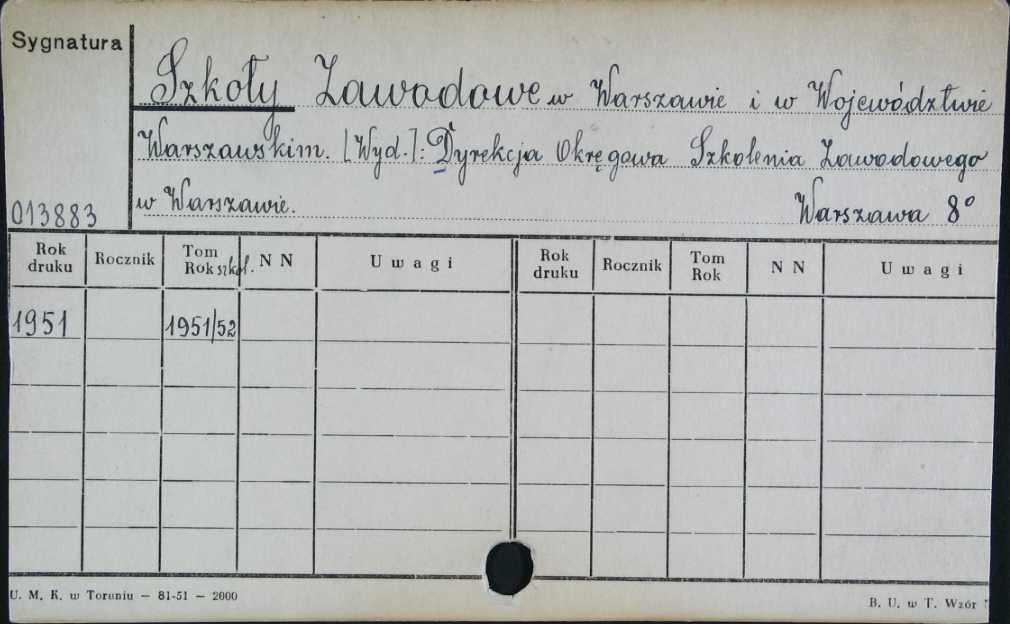 Sygnatura
Szkoły Zawodowe w Warszawie i w Województwie
Warszawskim. [Wyd.]: Dyrekcja Okręgowa Szkolenia Zawodowego
w Warszawie. Warszawa 8°
013883
Rok druku Rocznik Tom Rok szkol. N N Uwagi Rok druku Rocznik Tom Rok N N Uwagi
1951 1951/52
U. M. K. w Toruniu — 81-51 — 2000
B. U. w T. Wzór